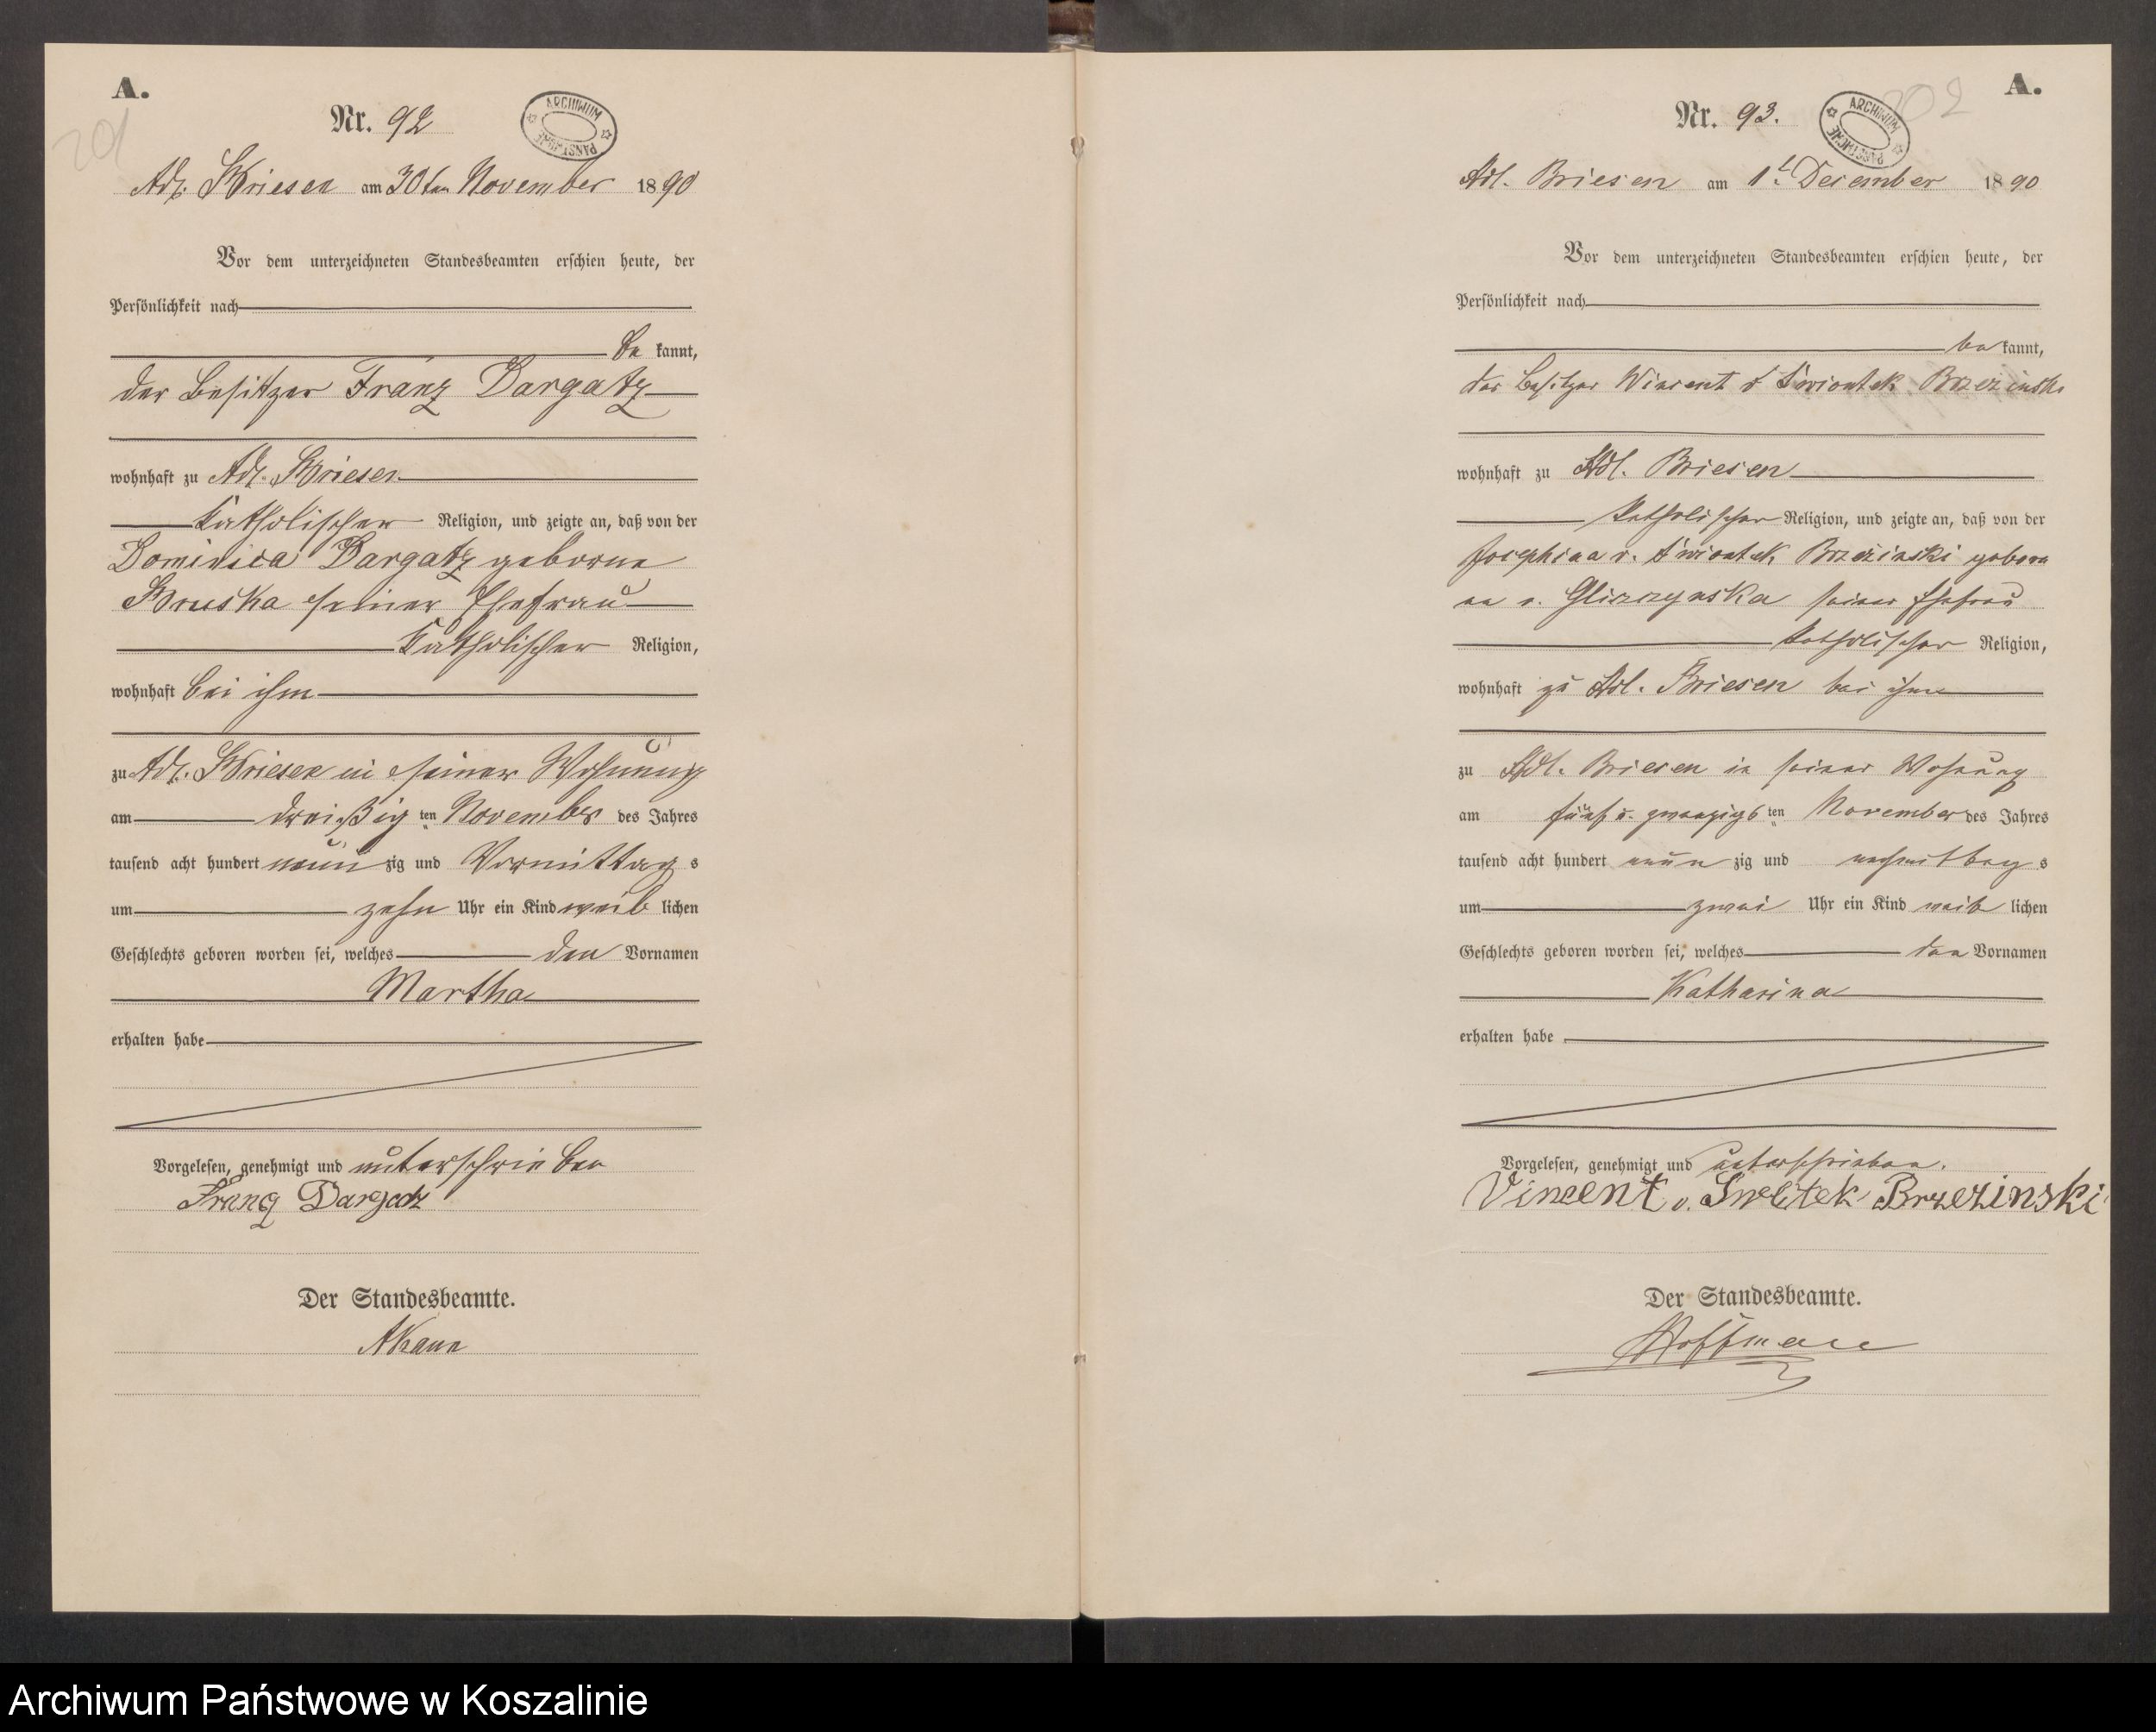 A.
201
Nr. 92
ARCHIWUM PAŃSTWOWE
Adl. Briesen am 30ten November 1890
Vor dem unterzeichneten Standesbeamten erschien heute, der
Persönlichkeit nach
be kannt,
der Besitzer Franz Dargatz
wohnhaft zu Adl. Briesen
katholischer Religion, und zeigte an, daß von der
Dominica Dargatz geborne
Bruska seiner Ehefrau
katholischer Religion,
wohnhaft bei ihm
zu Adl. Briesen in seiner Wohnung
am dreißig ten November des Jahres
tausend acht hundert neun zig und Vormittag s
um zehn Uhr ein Kind weib lichen
Geschlechts geboren worden sei, welches den Vornamen
Martha
erhalten habe
Vorgelesen, genehmigt und unterschrieben
Franz Dargatz
Der Standesbeamte.
A.
202
Nr. 93.
ARCHIWUM PAŃSTWOWE
Adl. Briesen am 1t. Dezember 1890
Vor dem unterzeichneten Standesbeamten erschien heute, der
Persönlichkeit nach
be kannt,
der Besitzer Vincent v Swiontek Brzezinski
wohnhaft zu Adl. Briesen
katholischer Religion, und zeigte an, daß von der
Josephina v. Swiontek Brzezinski gebore
ne v. seiner Ehefrau
katholischer Religion,
wohnhaft zu Adl. Briesen bei ihm
zu Adl. Briesen in seiner Wohnung
am fünf u. zwanzigs ten November des Jahres
tausend acht hundert neun zig und nachmittag s
um zwei Uhr ein Kind weib lichen
Geschlechts geboren worden sei, welches den Vornamen
Katharina
erhalten habe
Vorgelesen, genehmigt und unterschrieben.
Vincent v. Brzezinski
Der Standesbeamte.
Hoffmann
Archiwum Państwowe w Koszalinie